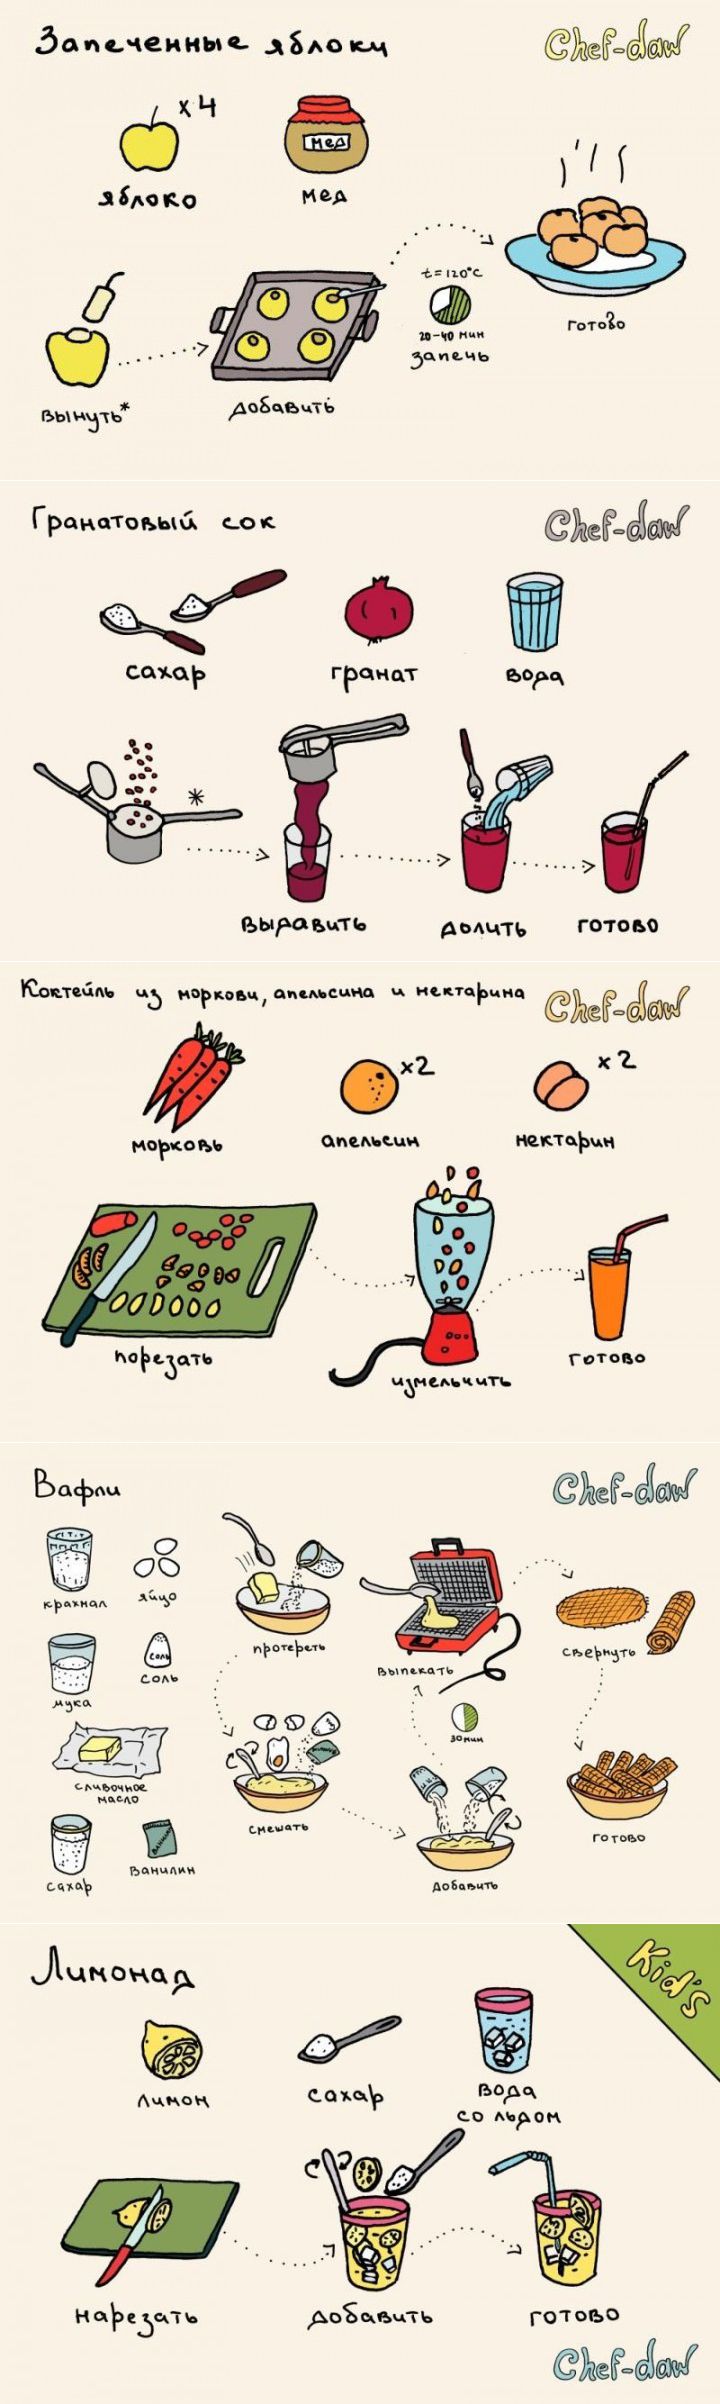 Запеченные яблоки
Chef-daw
x4
мед
яблоко
мед
t=120°C
20-40 мин
запечь
готово
вынуть*
добавить
Гранатовый сок
Chef-daw
сахар
гранат
вода
*
выдавить
долить
готово
Коктейль из моркови, апельсина и нектарина
Chef-daw
x2
x2
морковь
апельсин
нектарин
порезать
измельчить
готово
Вафли
Chef-daw
крахмал
яйцо
протереть
выпекать
свернуть
соль
соль
мука
30 мин
сливочное
масло
смешать
готово
сахар
ванилин
добавить
Лимонад
Kid's
лимон
сахар
вода
со льдом
нарезать
добавить
готово
Chef-daw